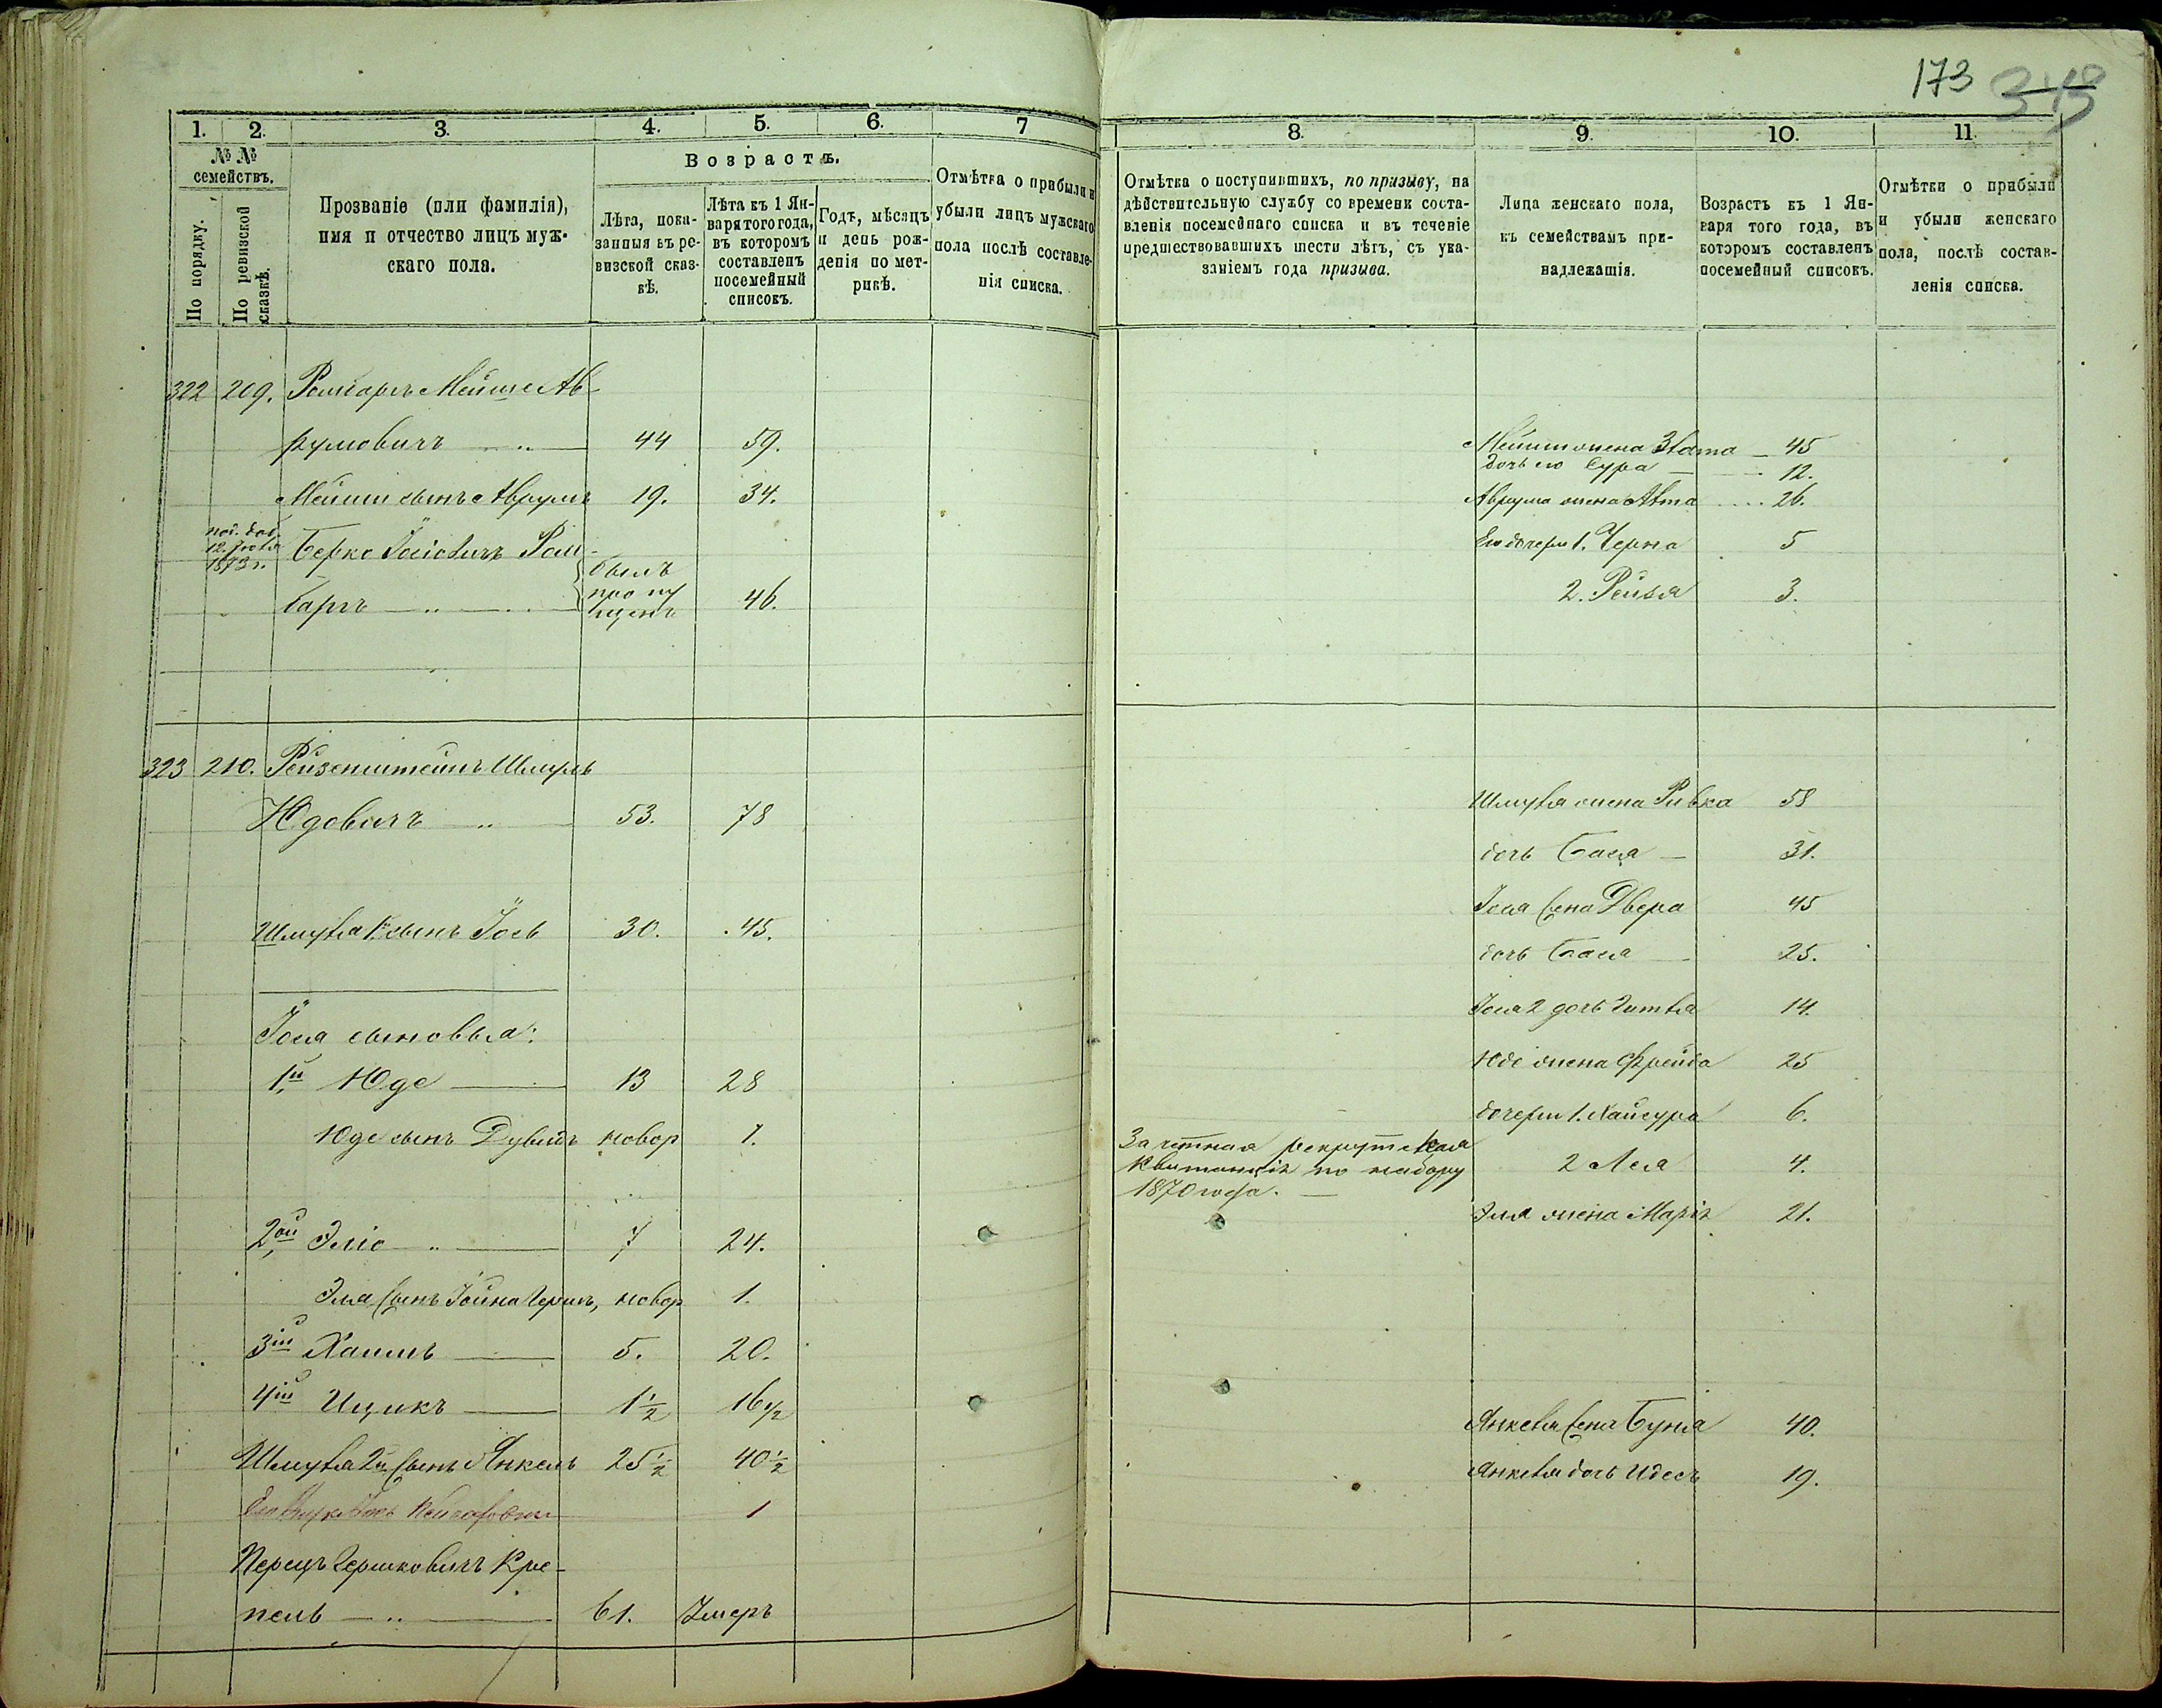 173
1. 2. 3. 4. 5. 6. 7
№ № семействъ.
По порядку.
По ревизской сказкѣ.
Прозваніе (или фамилія),
имя и отчество лицъ муж-
скаго пола.
Возрастъ.
Лѣта, пока-
занныя въ ре-
визской сказ-
кѣ.
Лѣта къ 1 Ян-
варя того года,
въ которомъ
составленъ
посемейный
списокъ.
Годъ, мѣсяцъ
и день рож-
денія по мет-
рикѣ.
Отмѣтка о прибыли и
убыли лицъ мужскаго
пола послѣ составле-
нія списка.
322 209. Мейше Ав-
румовичъ 44 59.
Мейши сынъ Аврумъ 19. 34.
12 1873 г.
Берко Іосіовичъ
былъ
пропу
щенъ
46.
323 210. Рейзенштейнъ Шмуль
Юдовичъ 53. 78
Шмуля 1й сынъ Іось 30. 45.
Іося сыновья:
1й Юде 13 28
Юде сынъ Дувидъ новор 1.
2ой Эліо 7 24.
Эля сынъ Іойна Гершъ, новор 1.
3ій Хаимъ 5. 20.
4ій Ицикъ 1 1/2 16 1/2
Шмуля 2й сынъ Янкель 25 1/2 40 1/2
1
Перецъ Гершковичъ Кре-
пель 61. Умеръ
8. 9. 10. 11.
Отмѣтка о поступившихъ, по призыву, на
дѣйствительную службу со времени соста-
вленія посемейнаго списка и въ теченіе
предшествовавшихъ шести лѣтъ, съ ука-
заніемъ года призыва.
Лица женскаго пола,
къ семействамъ при-
надлежащія.
Возрастъ къ 1 Ян-
варя того года, въ
которомъ составленъ
посемейный списокъ.
Отмѣтки о прибыли
и убыли женскаго
пола, послѣ состав-
ленія списка.
Мейши жена Злата 45
дочь его Сура 12.
Аврума жена 26.
Его дочери 1. Черна 5
2. Рейзя 3.
Шмуля жена Ривка 58
дочь Бася 31.
Іося жена Двера 45
дочь Бася 25.
Іося 2 дочь Гитля 14.
Юде жена Фрейда 25
дочери 1. Хайсура 6.
Зачетная рекрутская
квитанція по набору
1870 года.
2 Лея 4.
Эля жена Марія 21.
Янкеля жена Буня 40.
Янкеля дочь Идесъ 19.